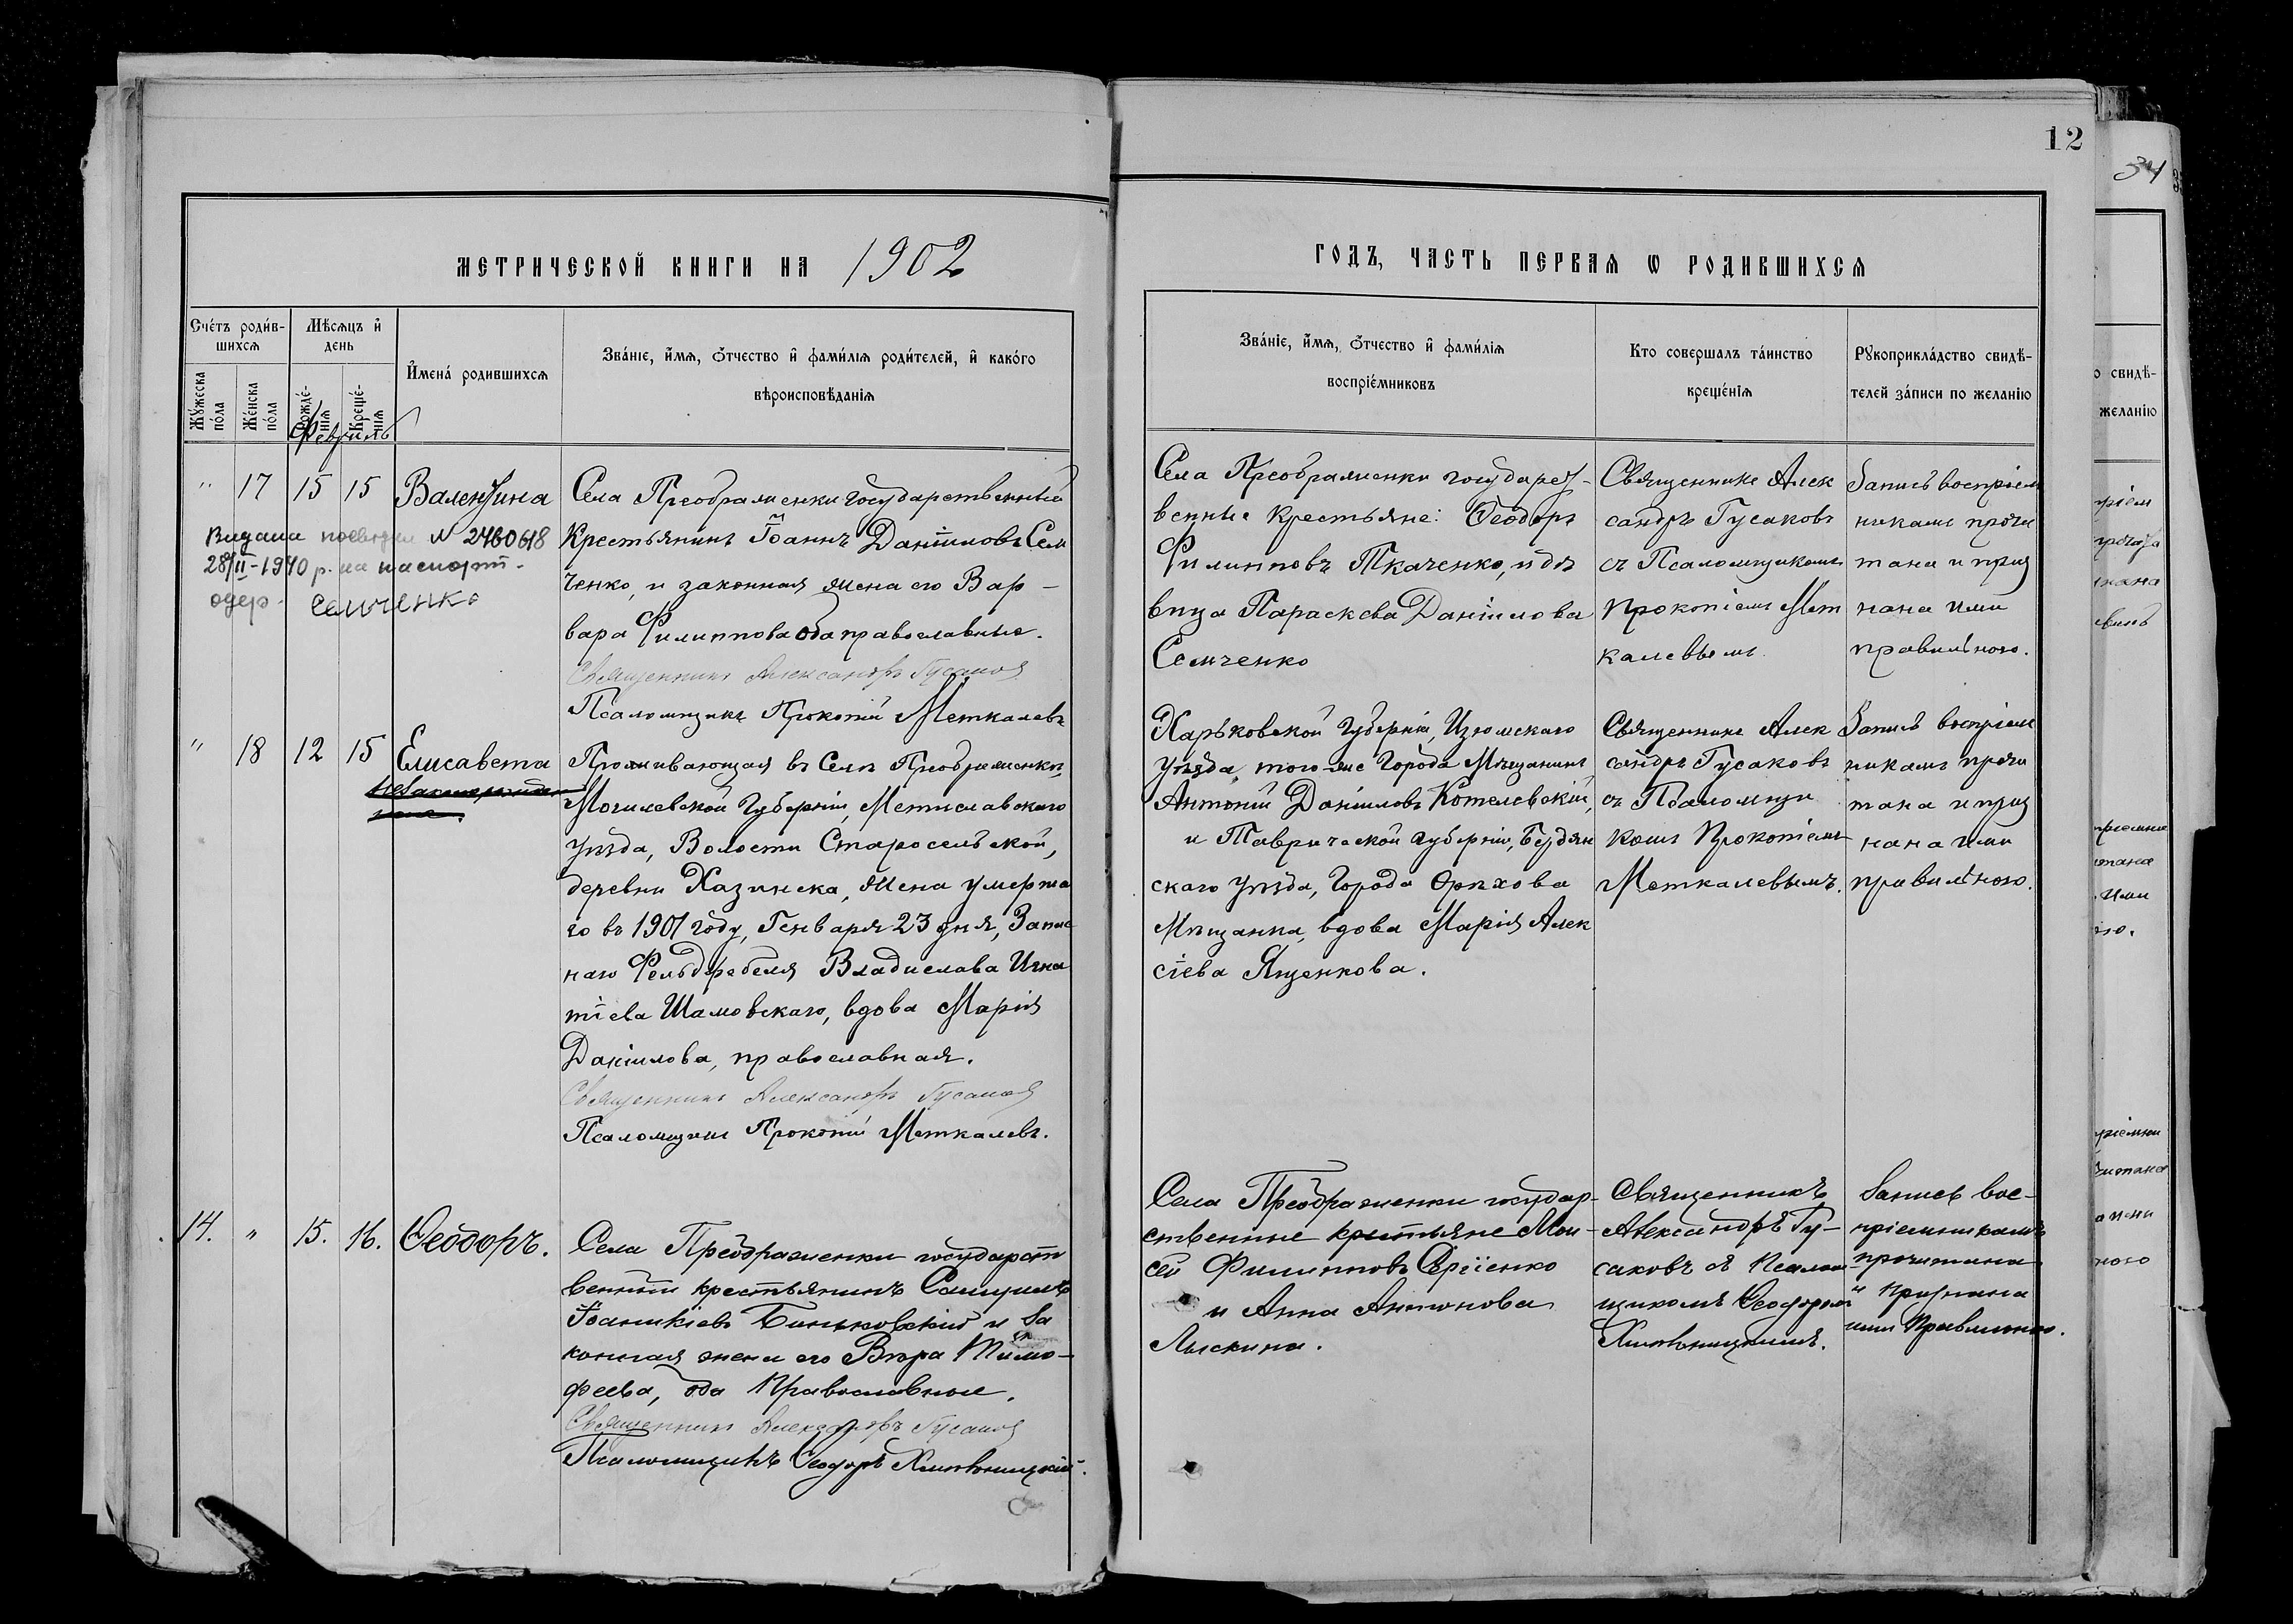 12
34
МЕТРИЧЕСКОЙ КНИГИ НА 1902
ГОДЪ, ЧАСТЬ ПЕРВАЯ Ѡ РОДИВШИХСЯ
Счетъ родив-
шихся
Мужеска
пола
Женска
пола
Мѣсяцъ и
день
Рожде-
нія
Креще-
нія
Февраль
Имена родившихся
Званіе, имя, отчество и фамилія родителей, и какого
вѣроисповѣданія
Званіе, имя, отчество и фамилія
воспріемниковъ
Кто совершалъ таинство
крещенія
Рукоприкладство свидѣ-
телей записи по желанію
" 17 15 15 Валентина
Видана посвідч N 2460618
28/II-1940 р. на паспорт.
одер. Семченко
Села Преображенки государственный
Крестьянинъ Іоаннъ Даніиловъ Сем
ченко, и законная жена его Вар-
вара Филиппова оба православные.
Священникъ Александръ Гусаковъ
Псаломщикъ Прокопій Меткалевъ
Села Преображенки государст-
венные крестьяне: Ѳеодоръ
Филипповъ Ткаченко, и дѣ
вица Параскева Даніилова
Семченко
Священникъ Алек
сандръ Гусаковъ
съ Псаломщикомъ
Прокопіемъ Мет
калевымъ
Запись воспріем
никамъ прочи
тана и приз
нана ими
правильною.
" 18 12 15 Елисавета
Проживающая въ Селѣ Преображенкѣ,
Могилевской Губерніи, Мстиславского
уѣзда, Волости Старосельской,
деревни Казимека, жена умерша
го въ 1901 году, Генваря 23 дня, Запас
наго Фельдфебеля Владислава Игна
тіева Шамовскаго, вдова Марія
Даніилова, православная.
Священникъ Александръ Гусаковъ
Псаломщикъ Прокопій Меткалевъ.
Харьковской Губерніи, Изюмскаго
уѣзда, того-же Города Мѣщанинъ
Антоній Даніиловъ Котелевскій,
и Таврической губерніи, Бердян
скаго уѣзда, Города Орѣхова
Мѣщанка, вдова Марія Алек
сіева Ященкова.
Священникъ Алек
сандръ Гусаковъ
съ Псаломщи
комъ Прокопіемъ
Меткалевымъ.
Запись воспріем
никамъ прочи
тана и приз
нана ими
правильною.
14. " 15. 16. Ѳеодоръ.
Села Преображенки государст
венный крестьянинъ Самуилъ
Іоаникіевъ Биньковскій и за
конная жена его Вѣра Тимо-
феева, оба Православные.
Священникъ Александръ Гусаковъ
Псаломщикъ Ѳеодоръ Хитвницкій.
Села Преображенки государ-
ственные крестьяне Мои-
сей Филипповъ Сергіенко
и Анна Антонова
Лыскина.
Священникъ
Александръ Гу-
саковъ съ Псалом-
щикомъ Ѳеодоромъ
Запись вос-
пріемникамъ
прочитана
и признана
ими Правильною.